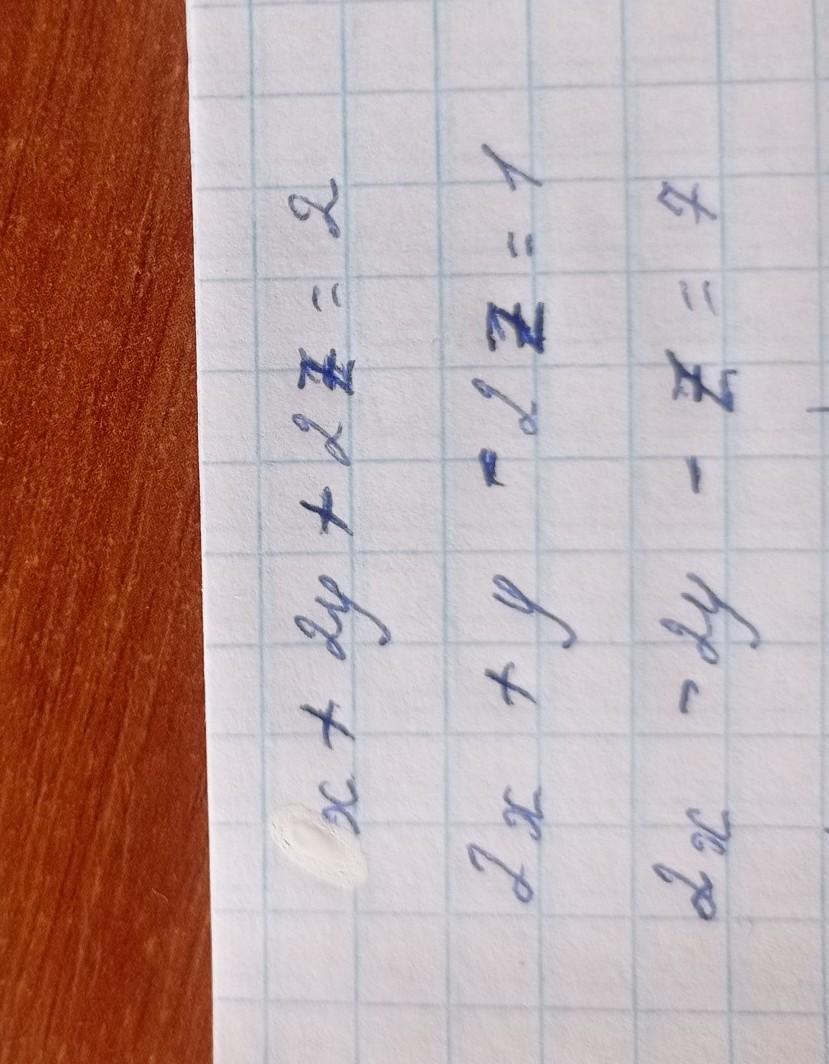 x + 2y + 2z = 2
2x + y - 2z = 1
2x - 2y - z = 7